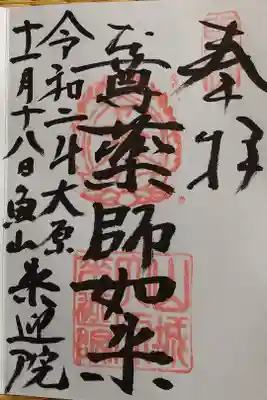 奉拝
尊薬師如来
令和二年大原
十一月十八日魚山来迎院